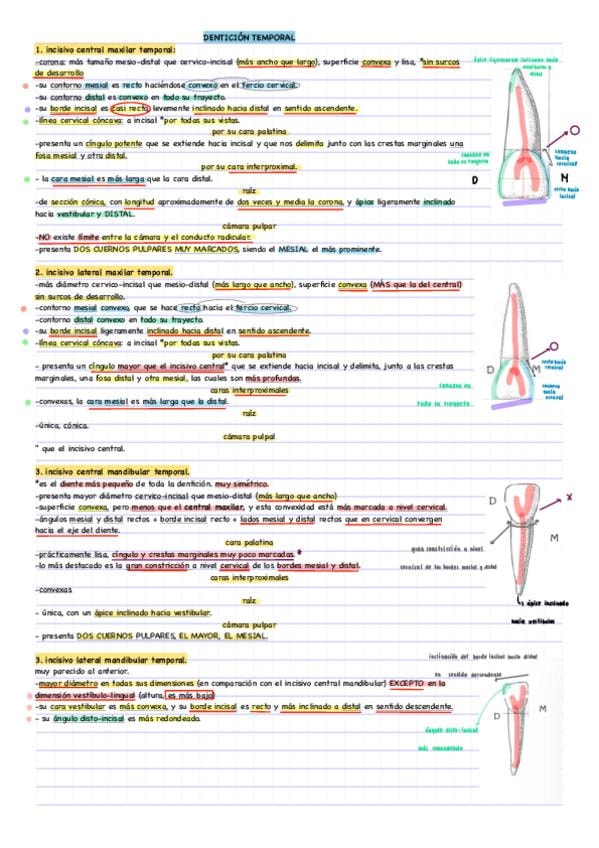 DENTICIÓN TEMPORAL
1. incisivo central maxilar temporal:
-corona: más tamaño mesio-distal que cervico-incisal (más ancho que largo), superficie convexa y lisa, *sin surcos
de desarrollo
-su contorno mesial es recto haciéndose convexo en el tercio cervical.
-su contorno distal es convexo en todo su trayecto.
-su borde incisal es casi recto levemente inclinado hacia distal en sentido ascendente.
-línea cervical cóncava: a incisal *por todas sus vistas.
por su cara palatina
-presenta un cíngulo potente que se extiende hacia incisal y que nos delimita junto con las crestas marginales una
fosa mesial y otra distal.
por su cara interproximal.
- la cara mesial es más larga que la cara distal.
raíz
-de sección cónica, con longitud aproximadamente de dos veces y media la corona, y ápice ligeramente inclinado
hacia vestibular y DISTAL.
cámara pulpar
-NO existe límite entre la cámara y el conducto radicular.
-presenta DOS CUERNOS PULPARES MUY MARCADOS, siendo el MESIAL el más prominente.
ápice ligeramente inclinado hacia
vestibular y
distal
convexo en
todo su trayecto
convexo
hacia
cervical
recto hacia
incisal
D
M
2. incisivo lateral maxilar temporal.
-más diámetro cervico-incisal que mesio-distal (más largo que ancho), superficie convexa (MÁS que la del central)
sin surcos de desarrollo.
-contorno mesial convexo, que se hace recto hacia el tercio cervical.
-contorno distal convexo en todo su trayecto.
-su borde incisal ligeramente inclinado hacia distal en sentido ascendente.
-línea cervical cóncava: a incisal *por todas sus vistas.
por su cara palatina
- presenta un cíngulo mayor que el incisivo central* que se extiende hacia incisal y delimita, junto a las crestas
marginales, una fosa distal y otra mesial, las cuales son más profundas.
caras interproximales
-convexas, la cara mesial es más larga que la distal.
raíz
-única, cónica.
cámara pulpal
" que el incisivo central.
convexo en
todo su trayecto
D
M
recto hacia
cervical
convexo
hacia
3. incisivo central mandibular temporal.
*es el diente más pequeño de toda la dentición. muy simétrico.
-presenta mayor diámetro cervico-incisal que mesio-distal (más largo que ancho)
-superficie convexa, pero menos que el central maxilar, y esta convexidad está más marcada a nivel cervical.
-ángulos mesial y distal rectos + borde incisal recto + lados mesial y distal rectos que en cervical convergen
hacia el eje del diente.
cara palatina
-prácticamente lisa, cíngulo y crestas marginales muy poco marcadas. *
-lo más destacado es la gran constricción a nivel cervical de los bordes mesial y distal.
caras interproximales
-convexas
raíz
- única, con un ápice inclinado hacia vestibular.
cámara pulpar
- presenta DOS CUERNOS PULPARES, EL MAYOR, EL MESIAL.
D
x
M
gran constricción a nivel
cervical de los bordes mesial y distal
ápice inclinado
hacia vestibular
3. incisivo lateral mandibular temporal.
muy parecido al anterior.
-mayor diámetro en todas sus dimensiones (en comparación con el incisivo central mandibular) EXCEPTO en la
dimensión vestíbulo-lingual (altura, es más bajo)
-su cara vestibular es más convexa, y su borde incisal es recto y más inclinado a distal en sentido descendente.
- su ángulo disto-incisal es más redondeado.
inclinación del borde incisal hacia distal
en sentido descendente
D
M
ángulo disto-incisal
más redondeado